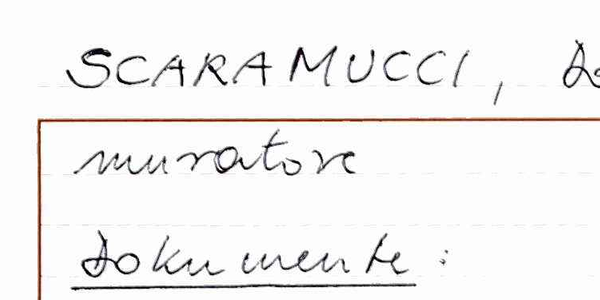 SCARAMUCCI,
muratore
Dokumente: